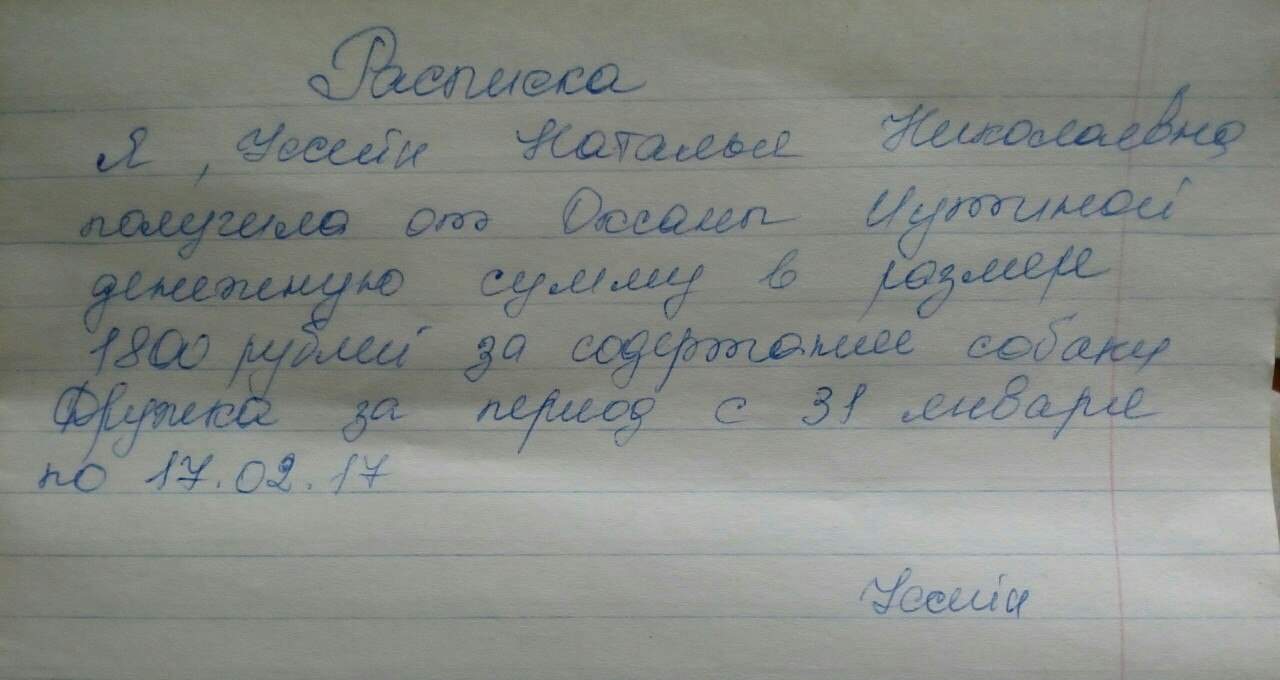 Расписка
Я, Усейн Наталья Николаевна
получила от Оксаны
денежную сумму в размере
1800 рублей за содержание собаки
Дружка за период с 31 января
по 17.02.17